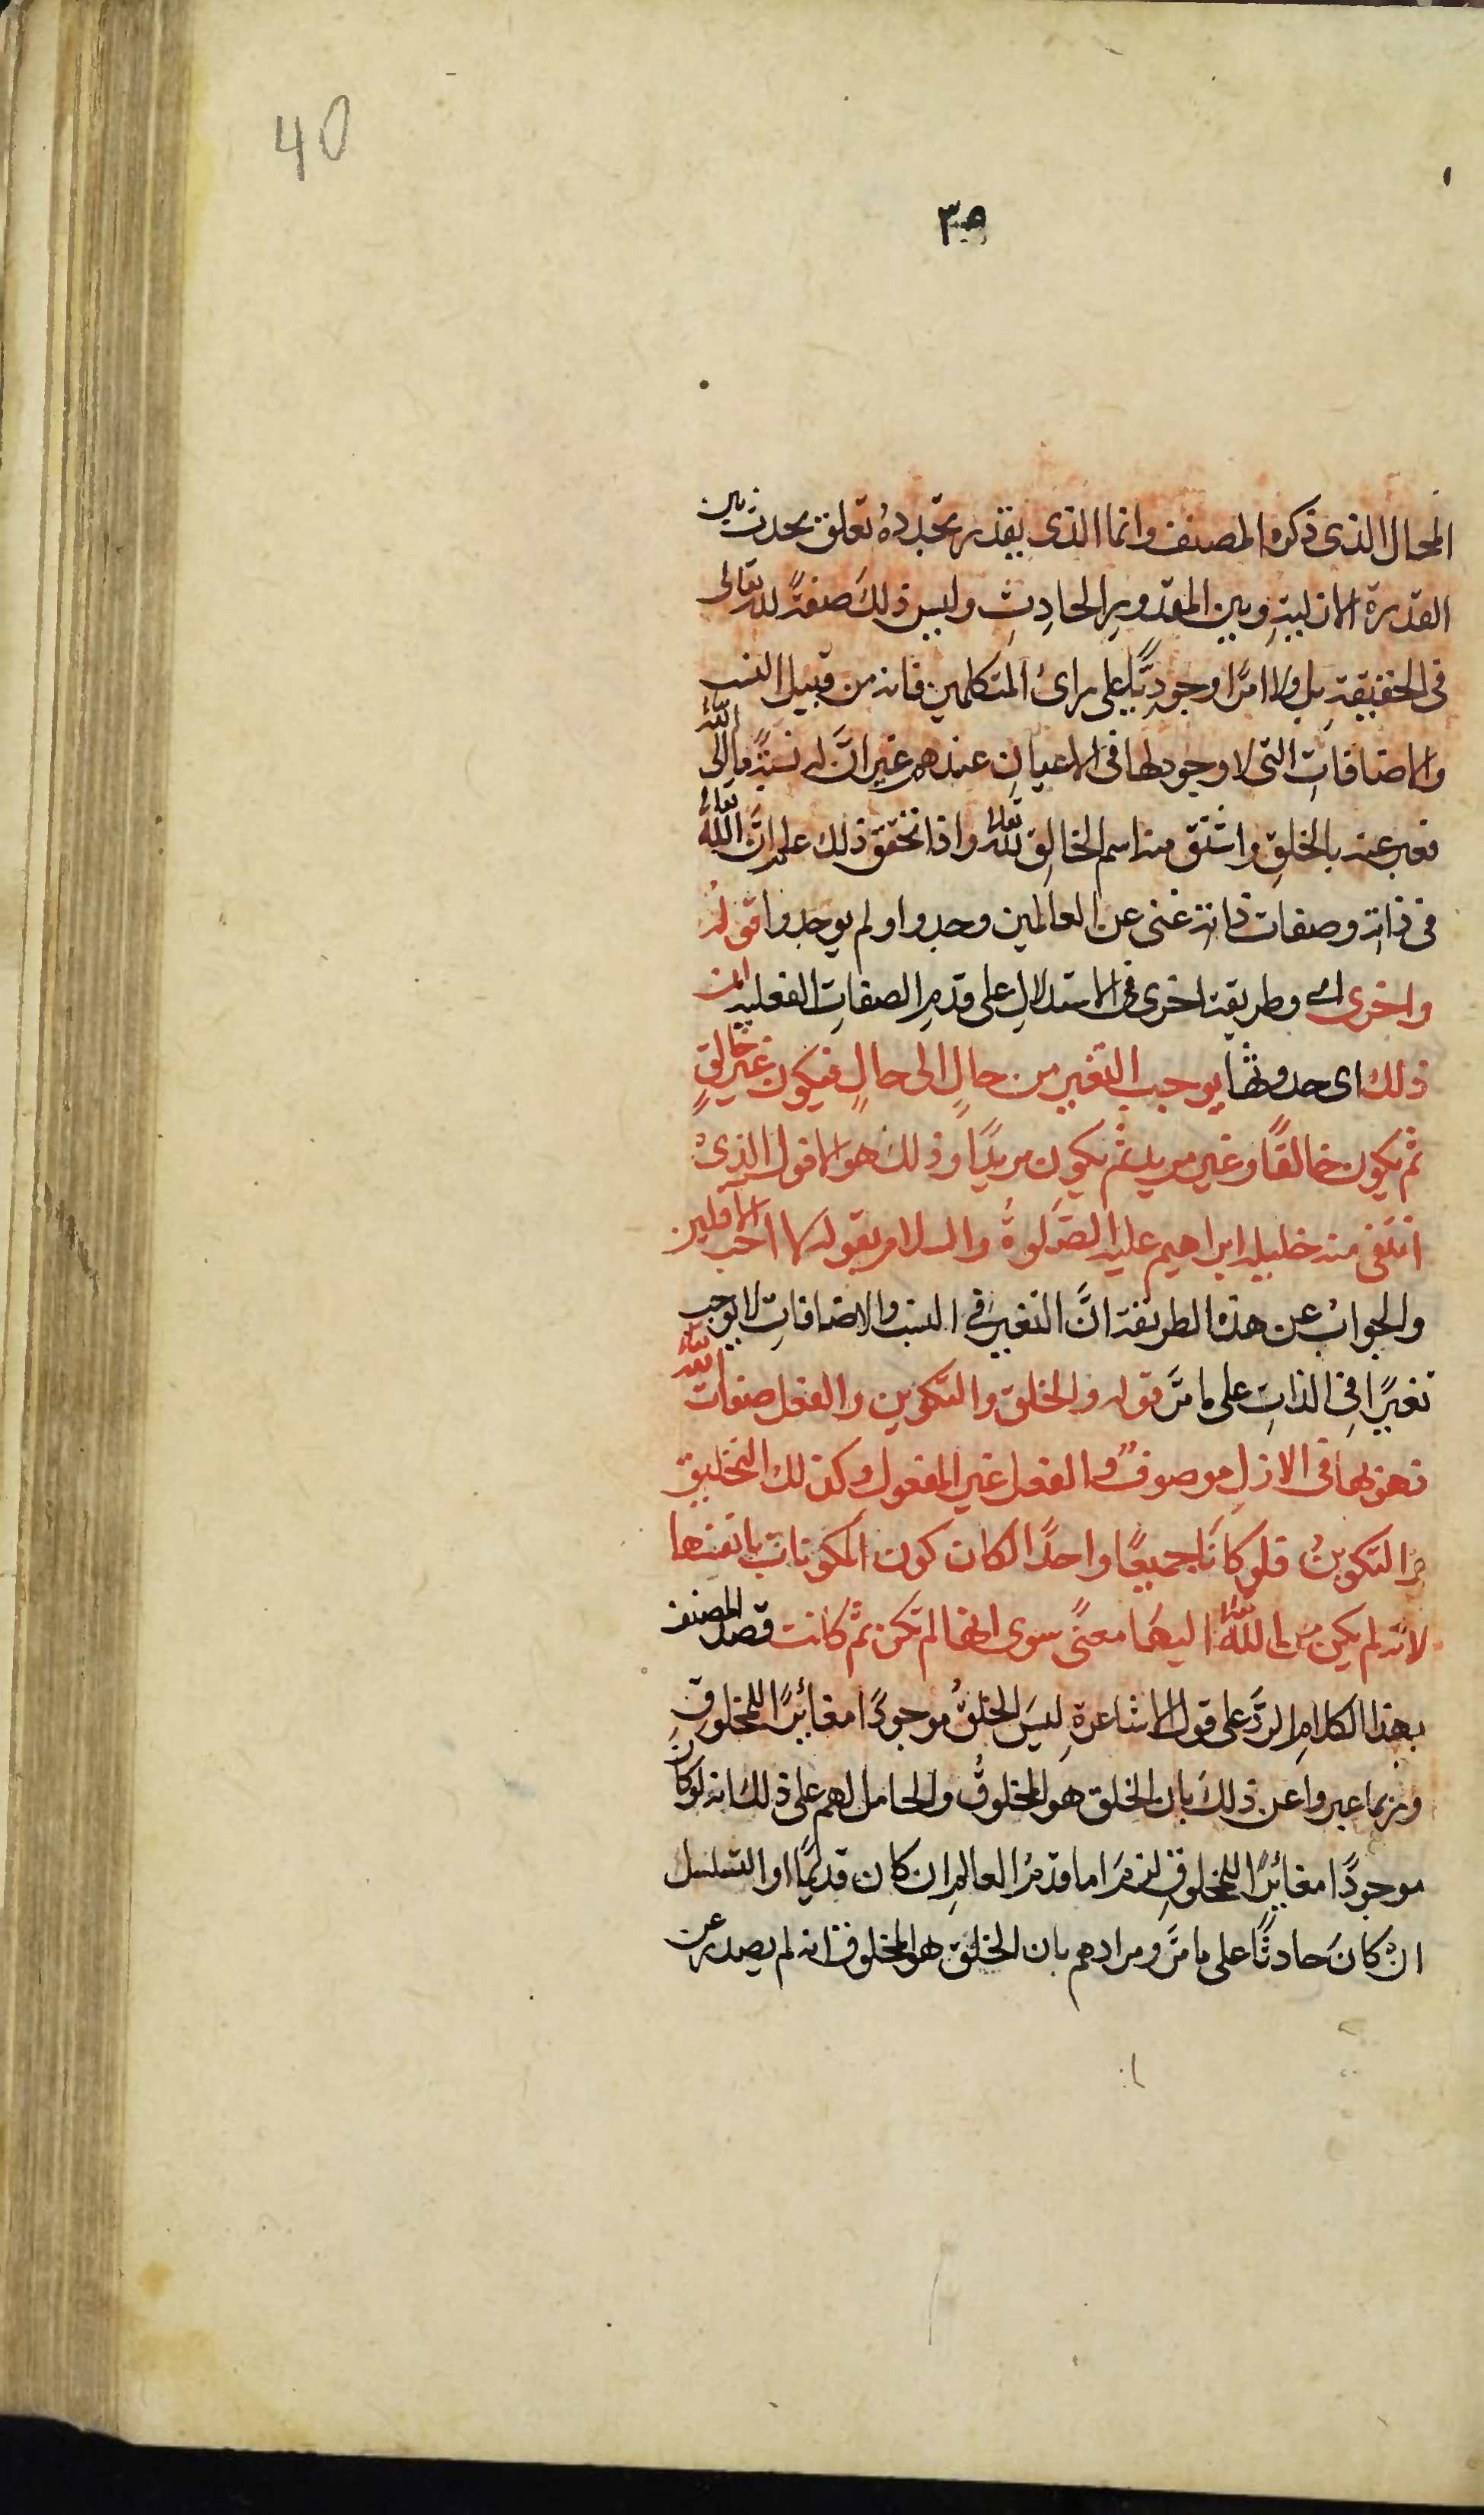 40
٣٥
المحال الذى ذكره المصنف وانما الذى يقدر تجدده تعلق يحدث بين
القدرة الازلية وبين المقدور الحادث وليس ذلك صفة لله تعالى
فى الحقيقة بل ولا امرًا وجوديًّا على راى المتكلمين فانه من قبيل النسب
والاضافات التى لا وجود لها فى الاعيان عندهم غير انَّ له نسبةً ما الى الله
فعبر عنه بالخلق واشتق منه اسم الخالق لله تعالى واذا تحقق ذلك علم انَّ الله تعالى
فى ذاته وصفات ذاته غنى عن العالمين وجدوا او لم يوجدوا قوله
واخرى اى وطريقة اخرى فى الاستدلال على قدم الصفات الفعلية ان
ذلك اى حدوثها يوجب التغير من حالٍ الى حالٍ فيكون غير خالقٍ
ثم يكون خالقًا وغير مريد ثم يكون مريدًا وذلك هو الافول الذى
انتفى منه خليله ابراهيم عليه الصلوة والسلام بقوله لا احب الآفلين
والجواب عن هذه الطريقة انَّ التغير فى النسب والاضافات لا يوجب
تغيرًا فى الذات على ما مرَّ قوله والخلق والتكوين والفعل صفات الله تعالى
فهو بها فى الازل موصوف والفعل غير المفعول وكذلك التخليق
والتكوين فلو كانا جميعًا واحدًا لكان كون المكونات بانفسها
لانه لم يكن من الله تعالى اليها معنًى سوى انها لم تكن ثم كانت قصد المصنف
بهذا الكلام الردَّ على قول الاشاعرة ليس الخلق موجودًا مغائرًا للمخلوق
وربما عبروا عن ذلك بان الخلق هو المخلوق والحامل لهم على ذلك انه لو كان
موجودًا مغائرًا للمخلوق لزم اما قدم العالم ان كان قديمًا او التسلسل
ان كان حادثًا على ما مرَّ ومرادهم بان الخلق هو المخلوق انه لم يصدر عن